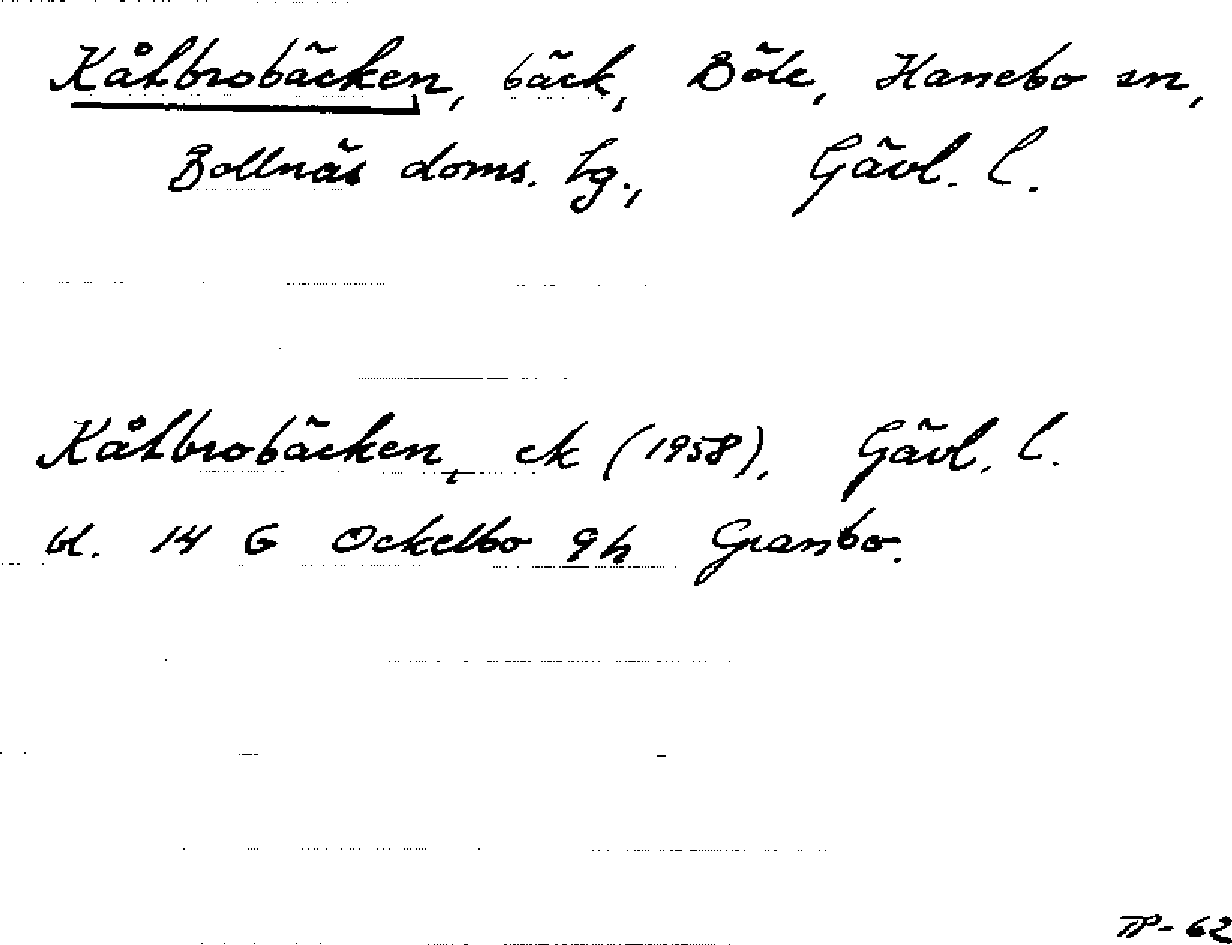 Kålbrobäcken, bäck, Böle, Hanebo sn,
Bollnäs doms. hg., Gävl. l.
Kålbrobäcken, ek (1958), Gävl. l.
bl. 14 G Ockelbo 9h Granbo.
TP-62